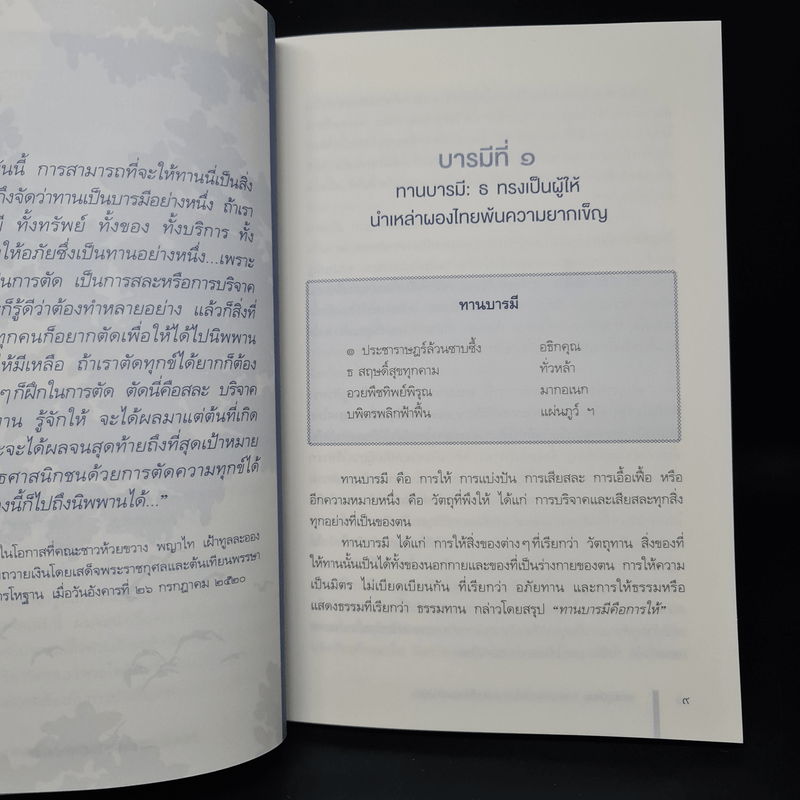 วันนี้ การสามารถที่จะให้ทานนี่เป็นสิ่ง
ถึงจัดว่าทานเป็นบารมีอย่างหนึ่ง ถ้าเรา
ทั้งทรัพย์ ทั้งของ ทั้งบริการ ทั้ง
ให้อภัยซึ่งเป็นทานอย่างหนึ่ง...เพราะ
เป็นการตัด เป็นการสละหรือการบริจาค
ก็รู้ดีว่าต้องทำหลายอย่าง แล้วก็สิ่งที่
ทุกคนก็อยากตัดเพื่อให้ได้ไปนิพพาน
ให้มีเหลือ ถ้าเราตัดทุกข์ได้ยากก็ต้อง
ๆก็ฝึกในการตัด ตัดนี่คือสละ บริจาค
ทาน รู้จักให้ จะได้ผลมาแต่ต้นที่เกิด
จะได้ผลจนสุดท้ายถึงที่สุดเป้าหมาย
ศาสนิกชนด้วยการตัดความทุกข์ได้
นี้ก็ไปถึงนิพพานได้...”
ในโอกาสที่คณะชาวห้วยขวาง พญาไท เฝ้าทูลละออง
ถวายเงินโดยเสด็จพระราชกุศลและต้นเทียนพรรษา
เมื่อวันอังคารที่ ๒๖ กรกฎาคม ๒๕๒๐
บารมีที่ ๑
ทานบารมี: ธ ทรงเป็นผู้ให้
นำเหล่าผองไทยพ้นความยากเข็ญ
ทานบารมี
๏ ประชาราษฎร์ล้วนซาบซึ้ง อธิกคุณ
ธ สฤษดิ์สุขทุกคาม ทั่วหล้า
อวยพืชทิพย์พิรุณ มากอเนก
บพิตรพลิกฟ้าพื้น แผ่นภูว์ ฯ
ทานบารมี คือ การให้ การแบ่งปัน การเสียสละ การเอื้อเฟื้อ หรือ
อีกความหมายหนึ่ง คือ วัตถุที่พึงให้ ได้แก่ การบริจาคและเสียสละทุกสิ่ง
ทุกอย่างที่เป็นของตน
ทานบารมี ได้แก่ การให้สิ่งของต่างๆที่เรียกว่า วัตถุทาน สิ่งของที่
ให้ทานนั้นเป็นได้ทั้งของนอกกายและของที่เป็นร่างกายของตน การให้ความ
เป็นมิตร ไม่เบียดเบียนกัน ที่เรียกว่า อภัยทาน และการให้ธรรมหรือ
แสดงธรรมที่เรียกว่า ธรรมทาน กล่าวโดยสรุป “ทานบารมีคือการให้”
๙